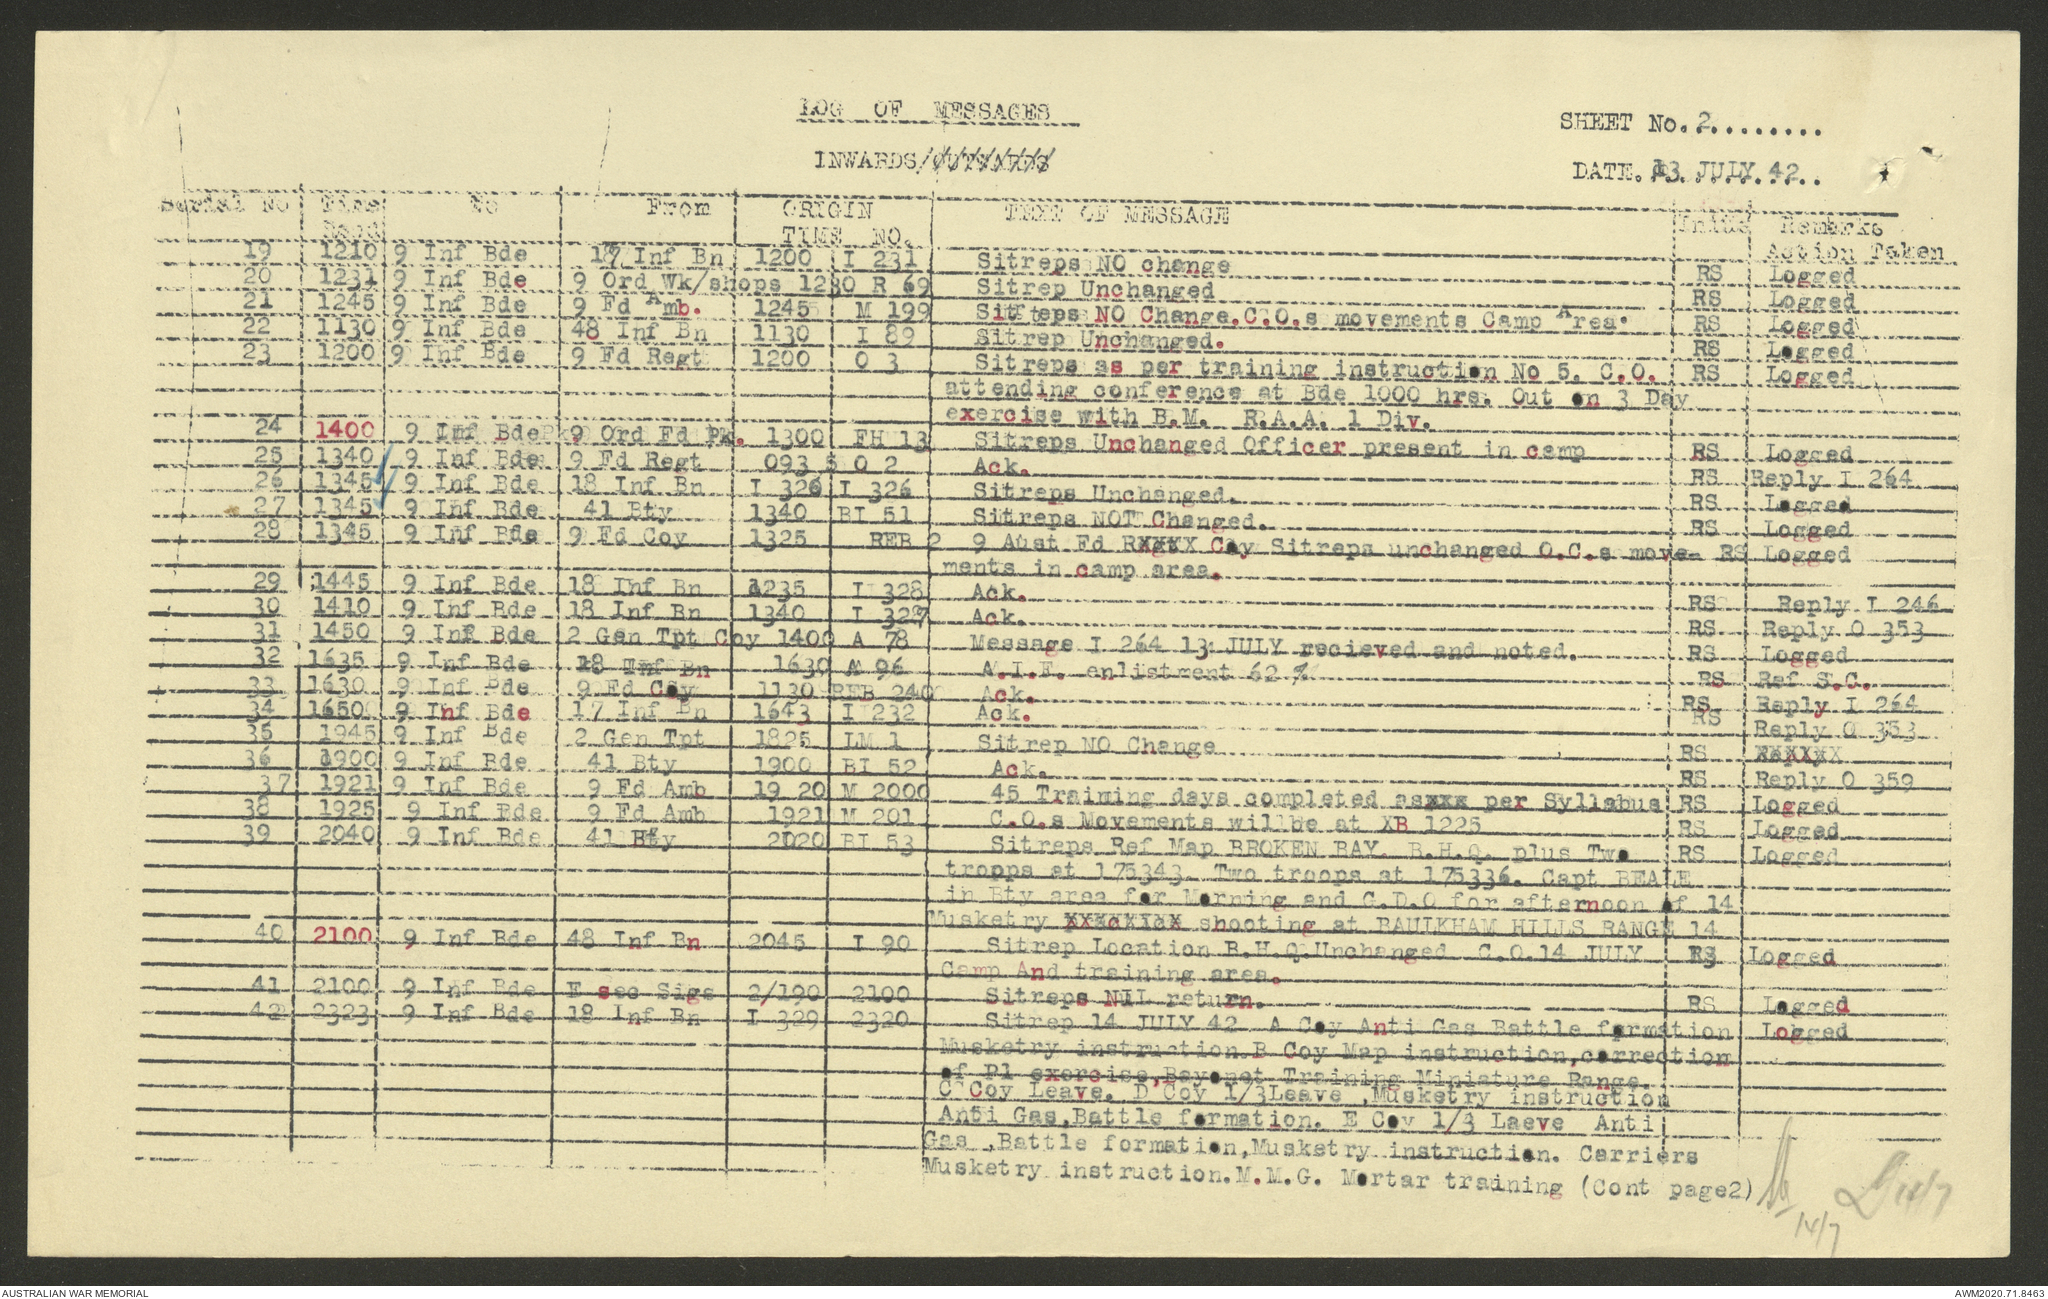 LOG OF MESSAGES
SHEET No. 2........
INWARDS/OUTWARDS
DATE. 13 JULY 42
Serial No Time To From ORIGIN TEXT OF MESSAGE Remarks
TIME NO. Action Taken
19 1210 9 Inf Bde 17 Inf Bn 1200 I 231 Sitreps NO change RS Logged
20 1231 9 Inf Bde 9 Ord Wk/shops 1230 R 69 Sitrep Unchanged RS Logged
21 1245 9 Inf Bde 9 Fd Amb. 1245 M 199 Sitreps NO Change.C.O.s movements Camp Area. RS Logged
22 1130 9 Inf Bde 48 Inf Bn 1130 I 89 Sitrep Unchanged. RS Logged
23 1200 9 Inf Bde 9 Fd Regt 1200 O 3 Sitreps as per training instruction No 5. C.O. RS Logged
attending conference at Bde 1000 hrs. Out on 3 Day
exercise with B.M. R.A.A. 1 Div.
24 1400 9 Inf Bde 9 Ord Fd Pk. 1300 FH 13 Sitreps Unchanged Officer present in camp RS Logged
25 1340 9 Inf Bde 9 Fd Regt 093 5 O 2 Ack. RS Reply I 264
26 1345 9 Inf Bde 18 Inf Bn I 326 I 326 Sitreps Unchanged. RS Logged
27 1345 9 Inf Bde 41 Bty 1340 BI 51 Sitreps NOT Changed. RS Logged
28 1345 9 Inf Bde 9 Fd Coy 1325 REB 2 9 Aust Fd RXXXX Coy Sitreps unchanged O.C.s move- RS Logged
ments in camp area.
29 1445 9 Inf Bde 18 Inf Bn 1235 I 328 Ack. RS Reply I 246
30 1410 9 Inf Bde 18 Inf Bn 1340 I 327 Ack. RS Reply O 353
31 1450 9 Inf Bde 2 Gen Tpt Coy 1400 A 78 Message I 264 13 JULY recieved and noted. RS Logged
32 1635 9 Inf Bde 18 Inf Bn 1630 A 96 A.I.F. enlistment 62 % RS Ref S.C.
33 1630 9 Inf Bde 9 Fd Coy 1130 REB 240 Ack. RS Reply I 264
34 1650 9 Inf Bde 17 Inf Bn 1643 I 232 Ack. RS Reply O 353
35 1945 9 Inf Bde 2 Gen Tpt 1825 LM 1 Sitrep NO Change RS XXXXXX
36 1900 9 Inf Bde 41 Bty 1900 BI 52 Ack. RS Reply O 359
37 1921 9 Inf Bde 9 Fd Amb 19 20 M 2000 45 Training days completed asxxx per Syllabus RS Logged
38 1925 9 Inf Bde 9 Fd Amb 1921 M 201 C.O.s Movements will be at XB 1225 RS Logged
39 2040 9 Inf Bde 41 Bty 2020 BI 53 Sitreps Ref Map BROKEN BAY. B.H.Q. plus Two RS Logged
tropps at 175343. Two troops at 175336. Capt BEALE
in Bty area for Morning and C.D.O for afternoon of 14
Musketry XXXXXXXX shooting at BAULKHAM HILLS RANGE 14
40 2100 9 Inf Bde 48 Inf Bn 2045 I 90 Sitrep Location B.H.Q.Unchanged C.O.14 JULY RS Logged
Camp And training area.
41 2100 9 Inf Bde E sec Sigs 2/190 2100 Sitreps NIL return. RS Logged
42 2323 9 Inf Bde 18 Inf Bn I 329 2320 Sitrep 14 JULY 42 A Coy Anti Gas Battle formation Logged
Musketry instruction.B Coy Map instruction,correction
of Pl exercise,Bayonet Training Miniature Range.
C Coy Leave. D Coy 1/3Leave ,Musketry instruction
Anti Gas,Battle formation. E Coy 1/3 Laeve Anti
Gas ,Battle formation,Musketry instruction. Carriers
Musketry instruction.M.M.G. Mortar training (Cont page2)
14/7
14/7
AUSTRALIAN WAR MEMORIAL
AWM2020.71.8463